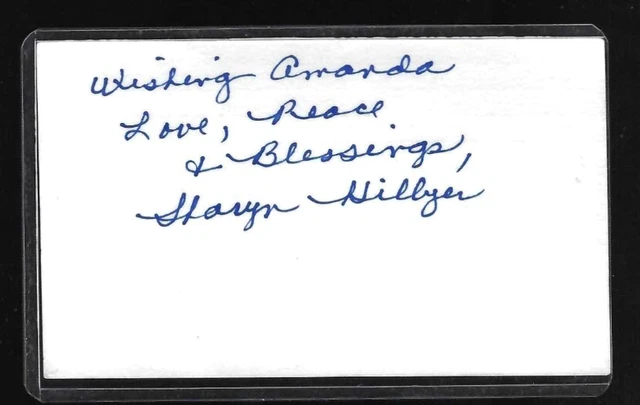 Wishing Amanda
Love, Peace
& Blessings,
Sharyn Hillyer